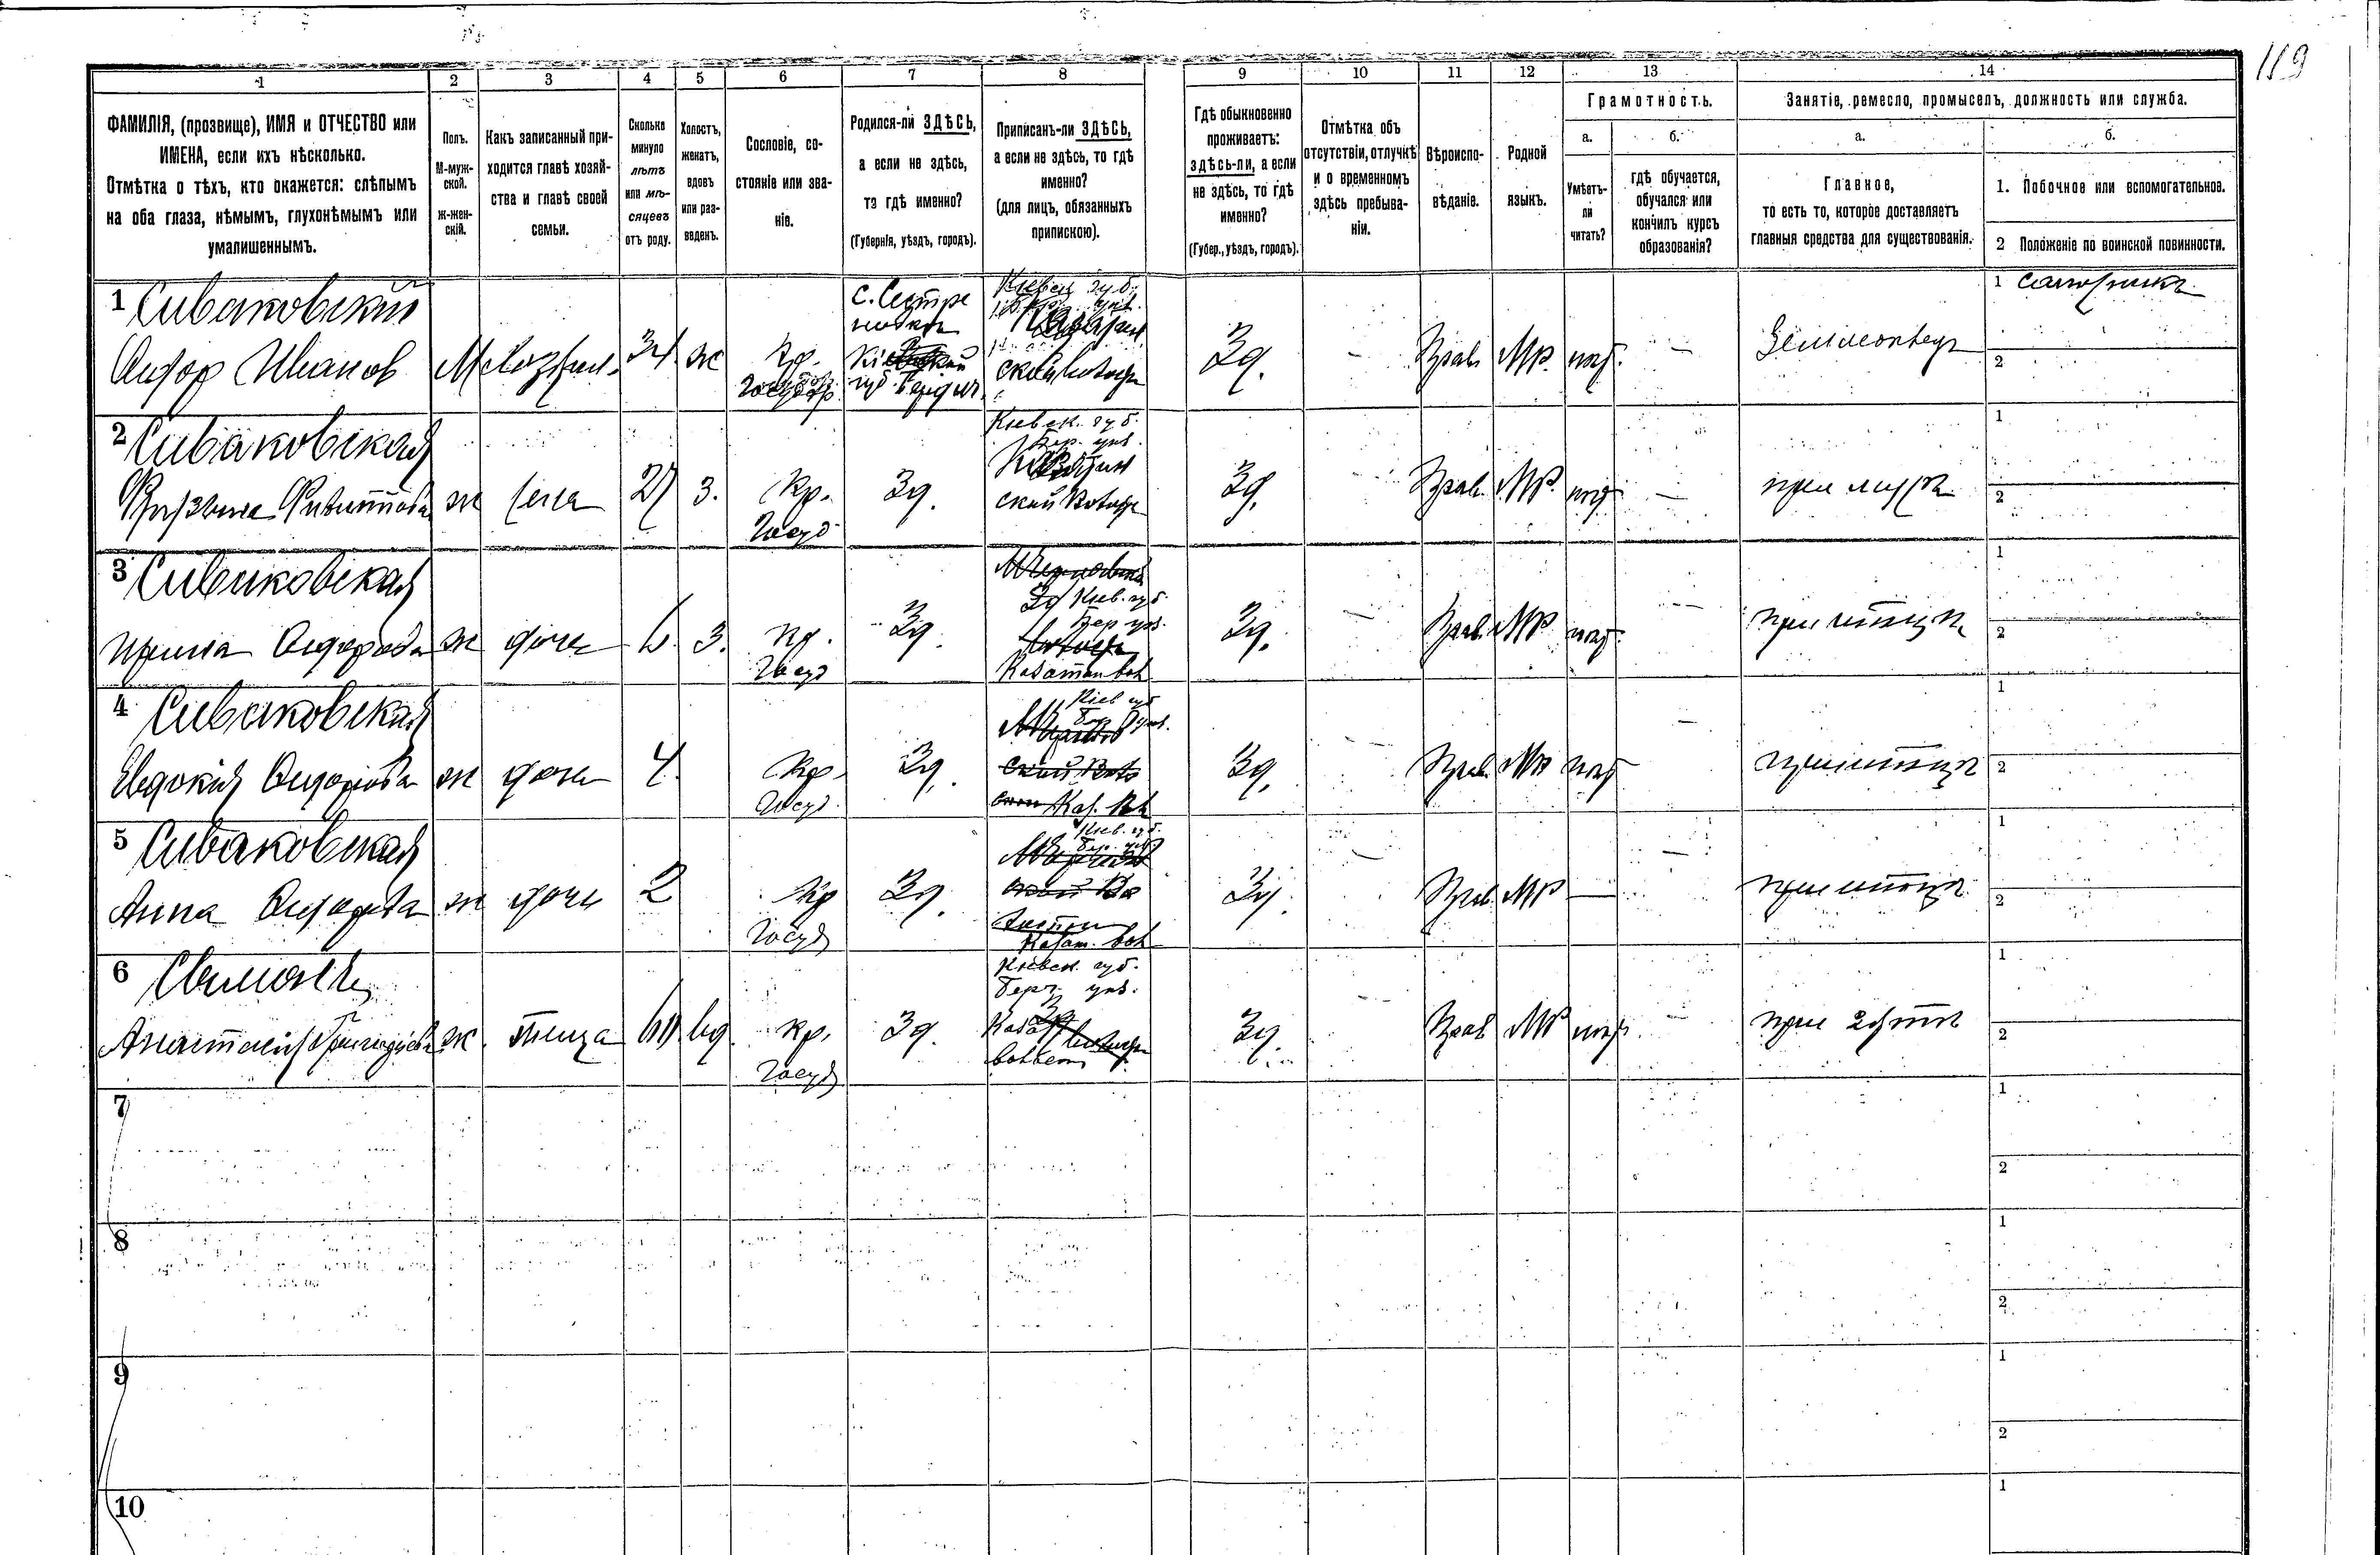 119
1 2 3 4 5 6 7 8 9 10 11 12 13 14
ФАМИЛІЯ, (прозвище), ИМЯ и ОТЧЕСТВО или
ИМЕНА, если ихъ нѣсколько.
Отмѣтка о тѣхъ, кто окажется: слѣпымъ
на оба глаза, нѣмымъ, глухонѣмымъ или
умалишеннымъ.
Полъ.
М-муж-
ской.
ж-жен-
скій.
Какъ записанный при-
ходится главѣ хозяй-
ства и главѣ своей
семьи.
Сколько
минуло
лѣтъ
или мѣ-
сяцевъ
отъ роду.
Холостъ,
женатъ,
вдовъ
или раз-
веденъ.
Сословіе, со-
стояніе или зва-
ніе.
Родился-ли ЗДѢСЬ,
а если не здѣсь,
то гдѣ именно?
(Губернія, уѣздъ, городъ).
Приписанъ-ли ЗДѢСЬ,
а если не здѣсь, то гдѣ
именно?
(для лицъ, обязанныхъ
припискою).
Гдѣ обыкновенно
проживаетъ:
здѣсь-ли, а если
не здѣсь, то гдѣ
именно?
(Губер., уѣздъ, городъ).
Отмѣтка объ
отсутствіи, отлучкѣ
и о временномъ
здѣсь пребыва-
ніи.
Вѣроиспо-
вѣданіе.
Родной
языкъ.
Грамотность.
а.
Умѣетъ-
ли
читать?
б.
гдѣ обучается,
обучался или
кончилъ курсъ
образованія?
Занятіе, ремесло, промыселъ, должность или служба.
а.
Главное,
то есть то, которое доставляетъ
главныя средства для существованія.
б.
1. Побочное или вспомогательное.
2 Положеніе по воинской повинности.
1 Сиваковский
Сидор Иванов
М
хозяин
34
ж
Кр.
Государ
С. Сестре
новка
губ. Бердич.
Киевск губ.
Зд.
Прав
МР.
нет
Земледелец
1 сапожник
2
2 Сиваковская
ж
жена
27
З.
Кр.
Госуд
Зд.
Киевск. губ.
Бер. уез.
ской волости
Зд.
Прав
МР.
нет
при муже
1
2
3 Сиваковская
Ирина Сидорова
ж
дочь
6.
З.
Кр.
Госуд
Зд.
Киев. губ.
Бер уез.
Казатин вол
Зд.
Прав.
МР
нет
при отце
1
2
4 Сиваковская
Евдокия Сидорова
ж
дочь
4
Кр.
Госуд
Зд.
Киев губ
Бер. уез.
Каз. вол
Зд.
Прав.
МР
нет
при отце
1
2
5 Сиваковская
Анна Сидорова
ж
дочь
2
Кр
Госуд
Зд.
Киев. губ.
Бер. уез.
Казат. вол
Зд.
Прав
МР
при отце
1
2
6
ж.
теща
60
вд
Кр.
Госуд
Зд.
Киевск. губ.
Берд. уез.
Зд.
Прав
МР
нет
при зяте
1
2
7
1
2
8
1
2
9
1
2
10
1